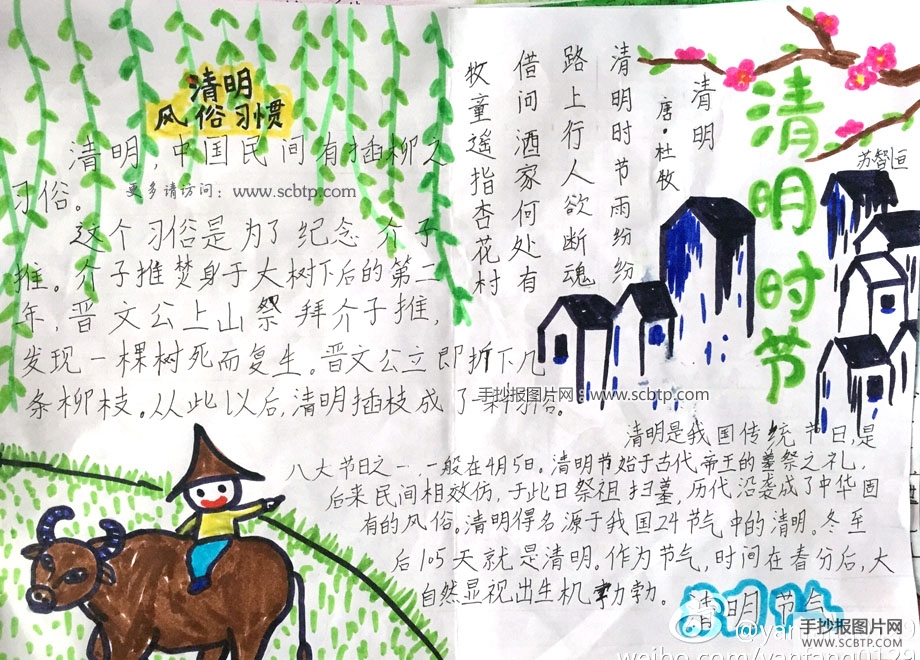 清明
风俗习惯
清明，中国民间有插柳之
习俗。
更多请访问：www.scbtp.com
这个习俗是为了纪念介子
推。介子推焚身于大树下后的第二
年，晋文公上山祭拜介子推，
发现一棵树死而复生。晋文公立即折下几
条柳枝。从此以后，清明插枝成了
手抄报图片网 www.scbtp.com
清明
唐·杜牧
清明时节雨纷纷
路上行人欲断魂
借问酒家何处有
牧童遥指杏花村
清明时节
苏智恒
清明是我国传统节日，是
八大节日之一，一般在4月5日。清明节始于古代帝王的墓祭之礼，
后来民间相效仿，于此日祭祖扫墓，历代沿袭成了中华固
有的风俗。清明得名源于我国24节气中的清明。冬至
后105天就是清明。作为节气，时间在春分后，大
自然显视出生机勃勃。
清明节气
手抄报图片网
WWW.SCBTP.COM